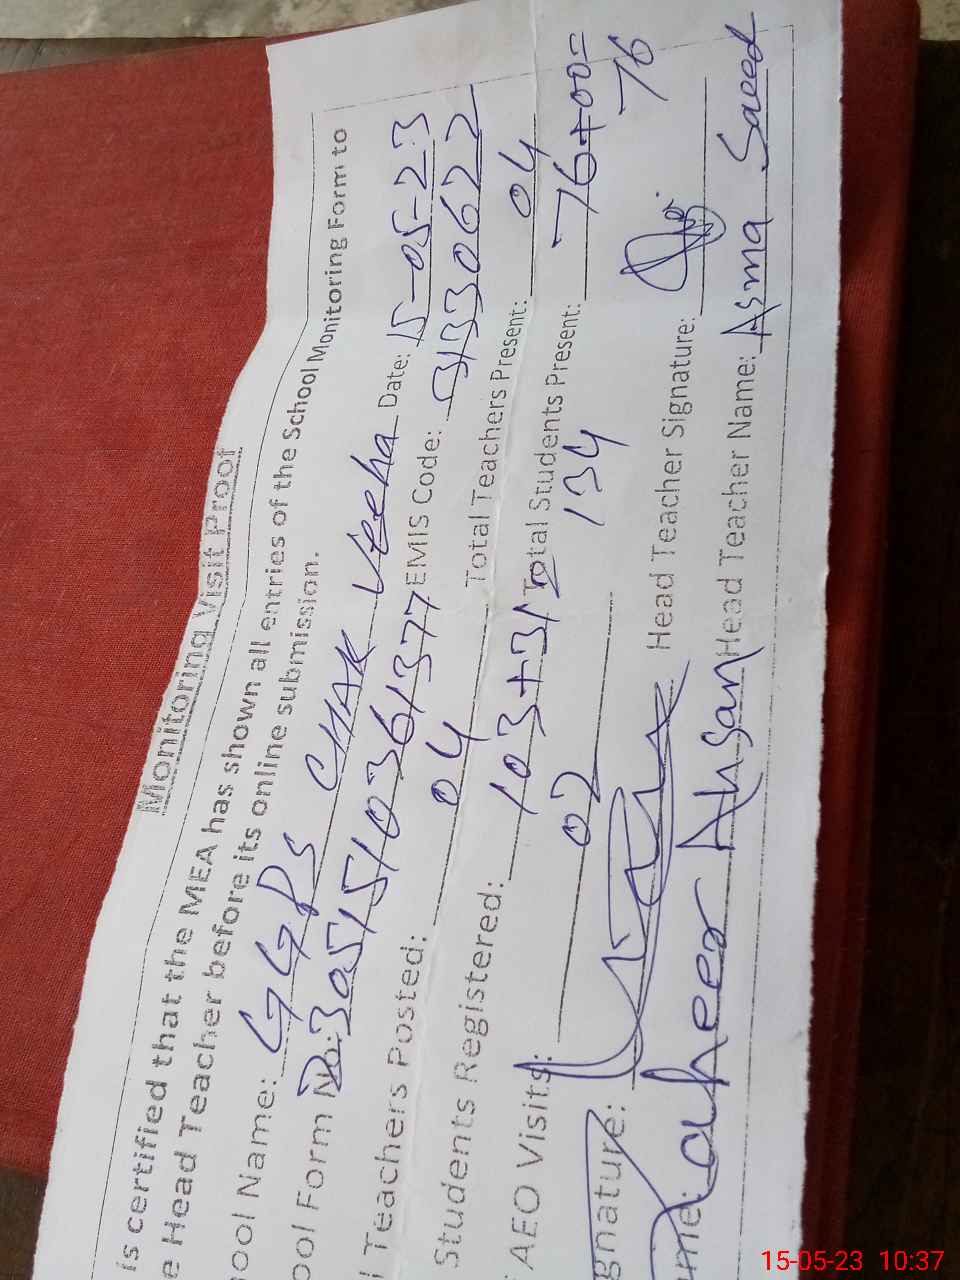 Monitoring Visit Proof
is certified that the MEA has shown all entries of the School Monitoring Form to
e Head Teacher before its online submission.
ool Name: GGPS CHAK Veeha Date: 15-05-23
ool Form No: 305151036/377 EMIS Code: 31330622
l Teachers Posted: 04 Total Teachers Present: 04
Students Registered: 103+31= 134 Total Students Present: 76+00= 76
AEO Visits: 02
gnature: Head Teacher Signature:
ame: Zaheer Ahsan Head Teacher Name: Asma Saeed
15-05-23 10:37